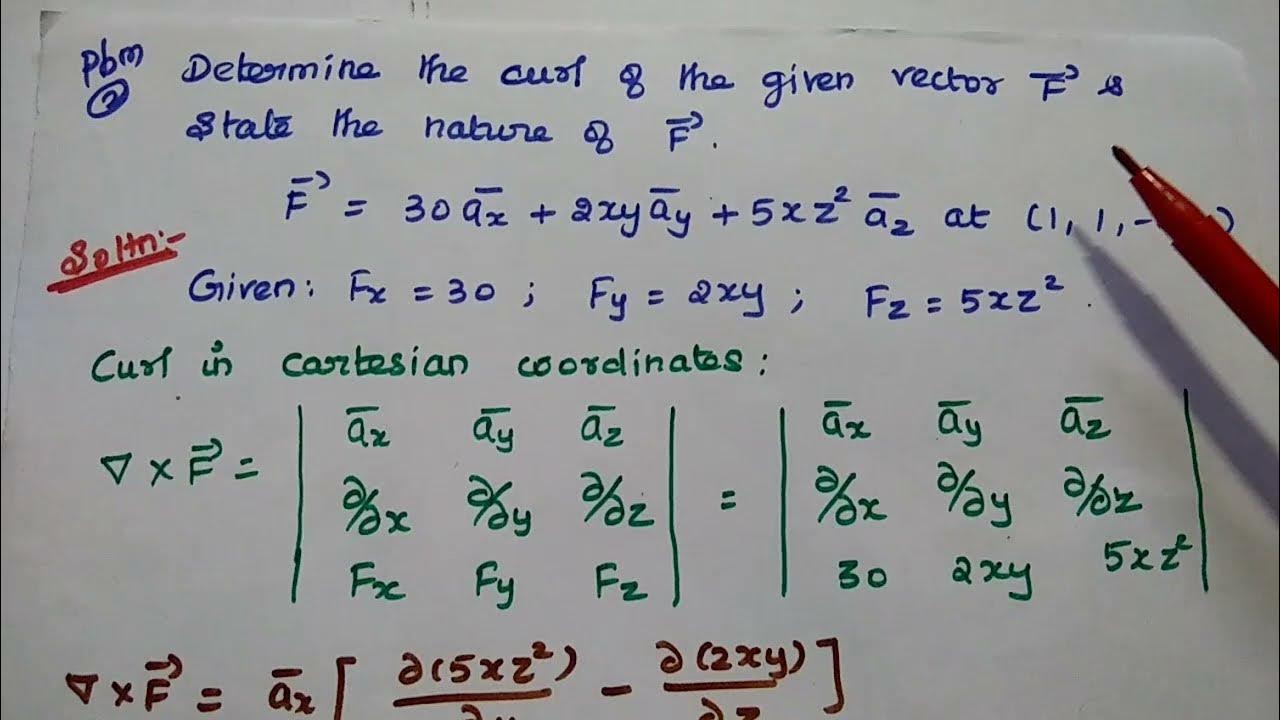 Pbm Determine the curl of the given vector F⃗ &
② State the nature of F⃗.
F⃗ = 30 a̅x + 2xy a̅y + 5xz² a̅z at (1, 1, - )
Soltn:-
Given: Fx = 30 ; Fy = 2xy ; Fz = 5xz².
Curl in cartesian coordinates:
a̅x a̅y a̅z a̅x a̅y a̅z
∇ × F⃗ = | ∂/∂x ∂/∂y ∂/∂z | = | ∂/∂x ∂/∂y ∂/∂z |
Fx Fy Fz 30 2xy 5xz²
∇ × F⃗ = a̅x [ ∂(5xz²)/∂y - ∂(2xy)/∂z ]